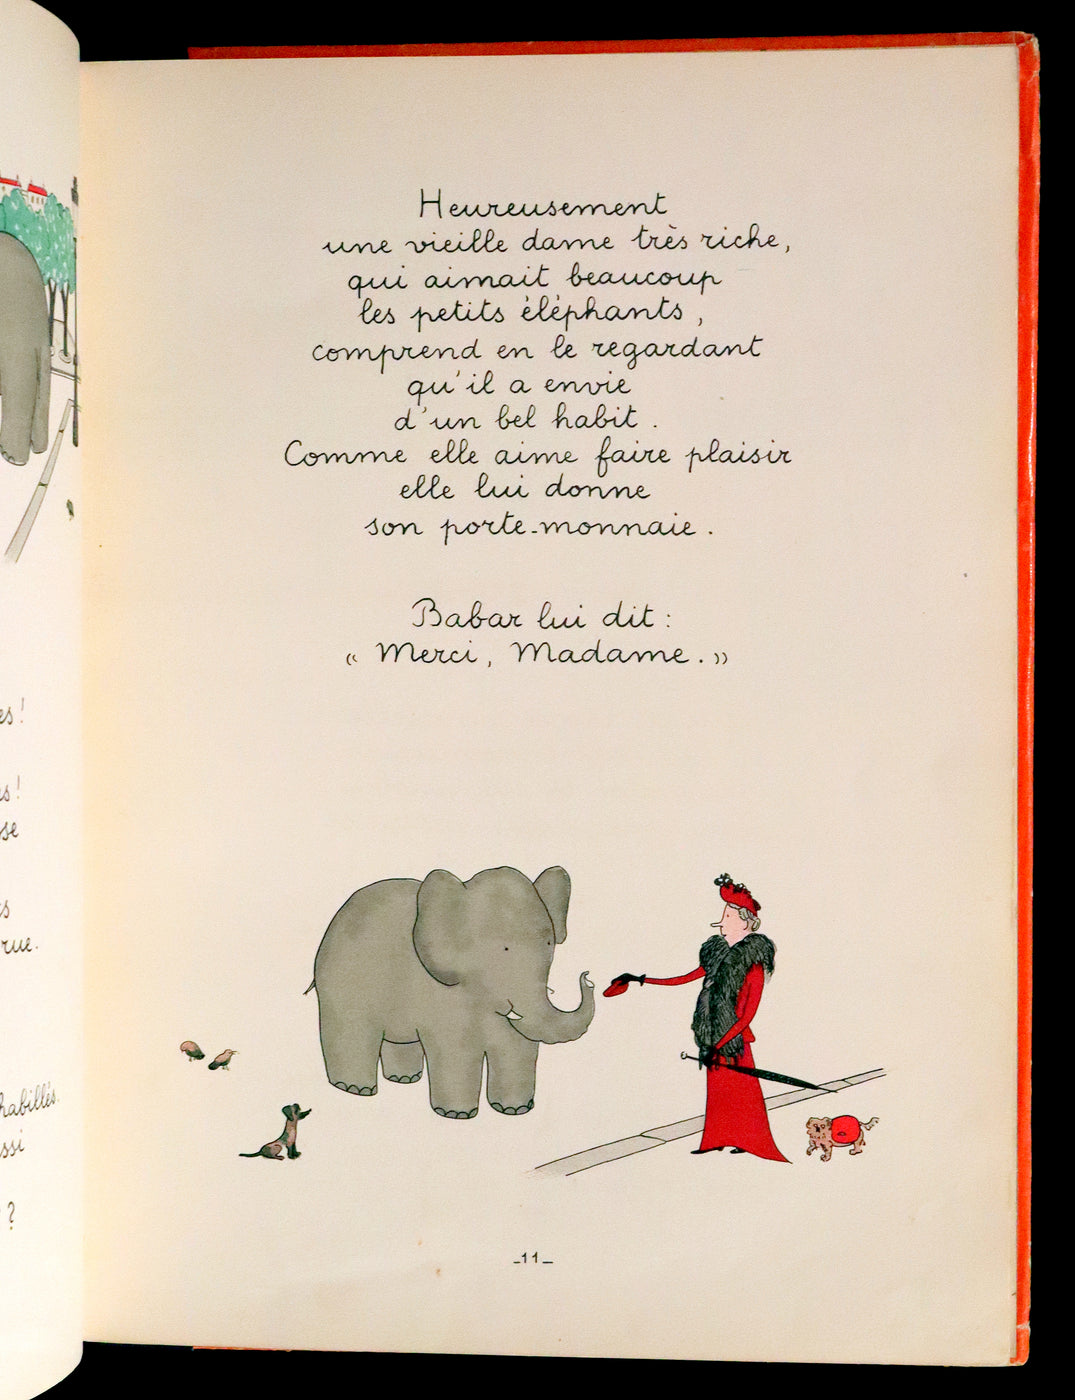 es!
es!
se
s
rue.
habillés.
ssi
?
Heureusement
une vieille dame très riche,
qui aimait beaucoup
les petits éléphants,
comprend en le regardant
qu'il a envie
d'un bel habit.
Comme elle aime faire plaisir
elle lui donne
son porte-monnaie.
Babar lui dit:
« Merci, Madame. »
_11_